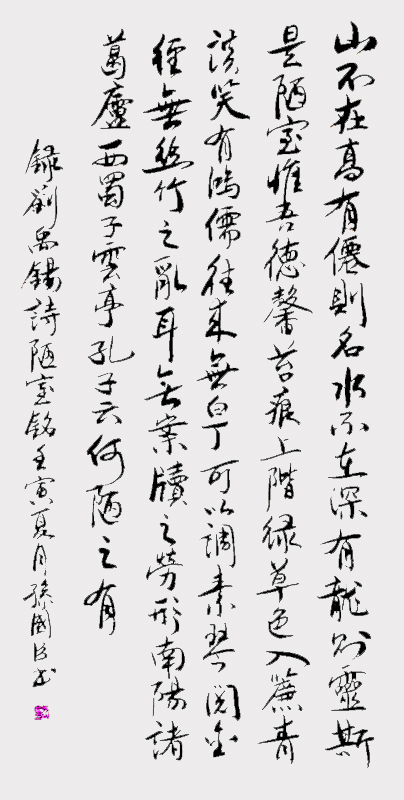 山不在高有僊則名水不在深有龍則靈斯
是陋室惟吾德馨苔痕上階緑草色入簾青
談笑有鴻儒往來無白丁可以調素琴閲金
經無絲竹之亂耳无案牘之勞形南陽諸
葛廬西蜀子雲亭孔子云何陋之有
録劉禹錫詩陋室銘壬寅夏月孫國书